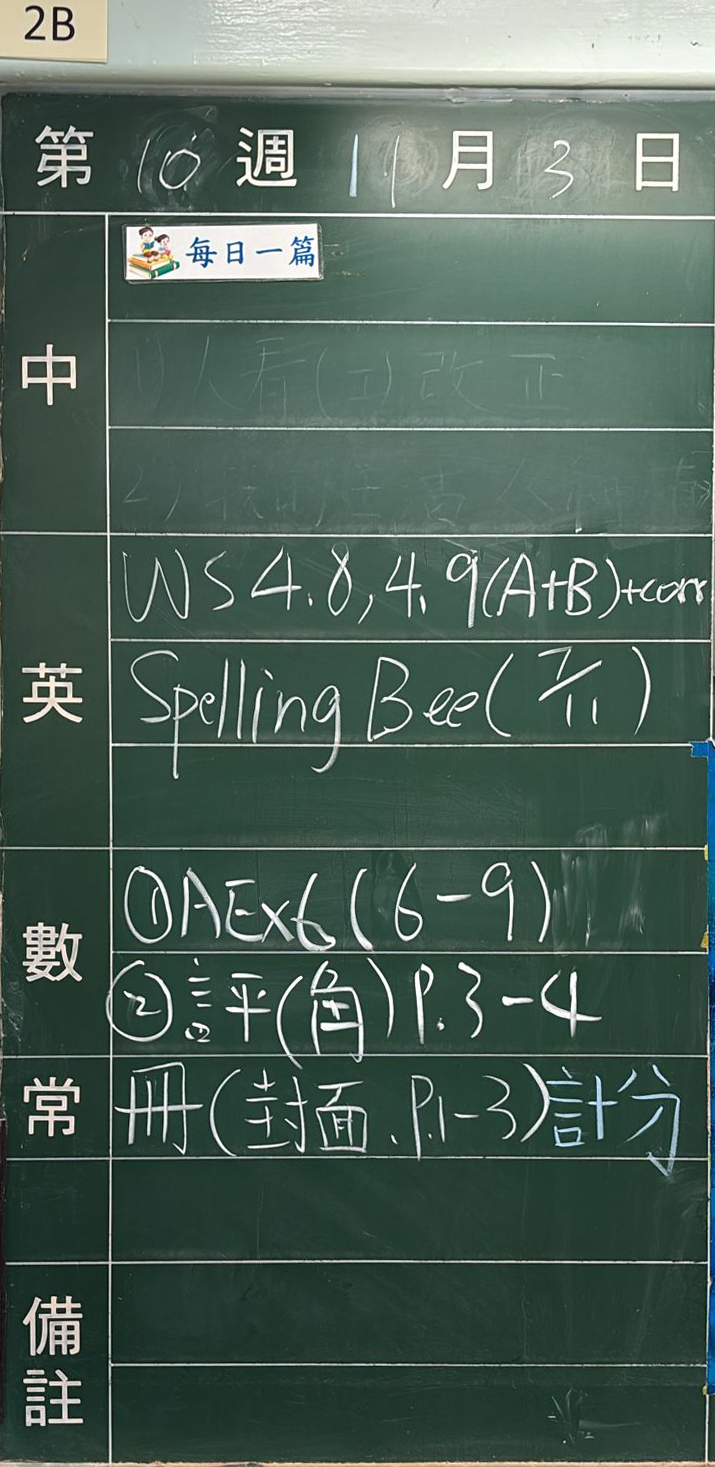 2B
第 10 週 11 月 3 日
中
每日一篇
1)人看(二)改正
英
WS 4.8, 4.9(A+B)+corr
Spelling Bee(7/11)
數
①AEx6(6-9)
②評平(角)P.3-4
常
冊(封面、P.1-3)計分
備註